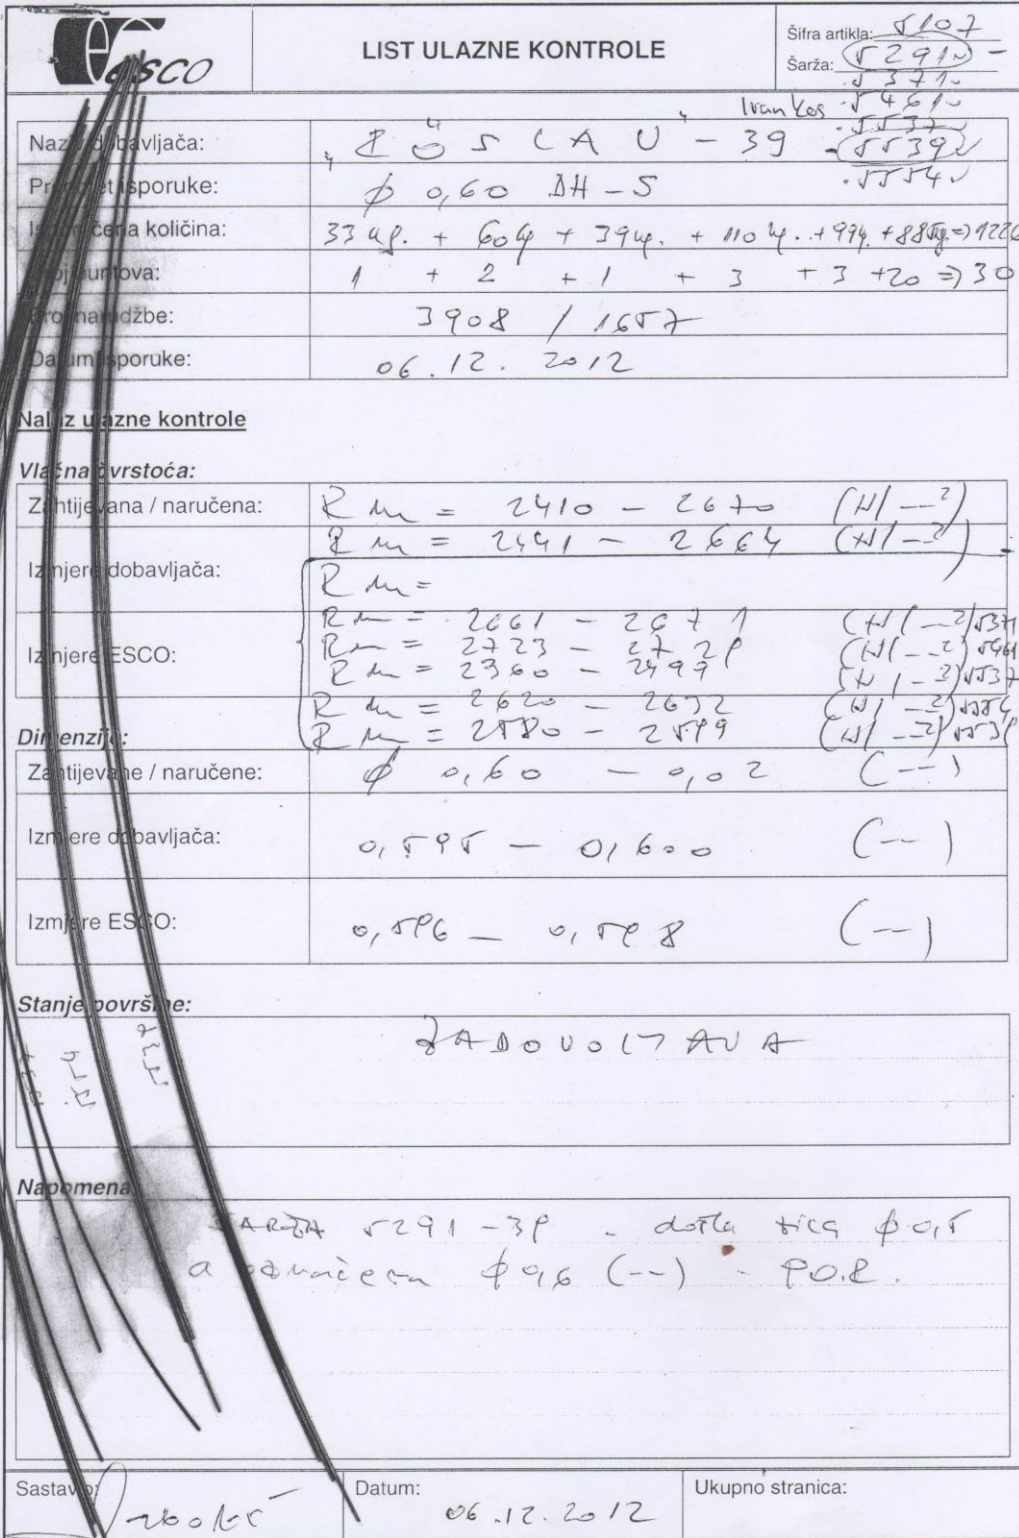 esco
LIST ULAZNE KONTROLE
Šifra artikla: 5107
Šarža: 5291 -
5371
Ivan Kos 5461
5537
Naziv dobavljača: "RÖSLAU" - 39 5539
Predmet isporuke: ϕ 0,60 DH-S .5554
Isporučena količina: 33 kg. + 60 kg + 39 kg. + 110 kg. + 99 kg. + 885 kg. => 1226
Broj buntova: 1 + 2 + 1 + 3 + 3 + 20 => 30
Broj narudžbe: 3908 / 1657
Datum isporuke: 06.12.2012
Nalaz ulazne kontrole
Vlačna čvrstoća:
Zahtijevana / naručena: Rm = 2410 - 2670 (N/--²)
Rm = 2441 - 2664 (N/--²)
Izmjere dobavljača: Rm =
Rm = 2661 - 2671 (N/--²) 5371
Izmjere ESCO: Rm = 2723 - 2729 (N/--²) 5461
Rm = 2360 - 2499 (N/--²) 5537
Rm = 2620 - 2632 (N/--²) 5554
Dimenzije: Rm = 2580 - 2599 (N/--²) 5539
Zahtijevane / naručene: ϕ 0,60 - 0,02 (--)
Izmjere dobavljača: 0,595 - 0,600 (--)
Izmjere ESCO: 0,596 - 0,598 (--)
Stanje površine:
ZADOVOLJAVA
5537
Napomena
ŠARŽA 5291-39 - došla žica ϕ 0,5
a označena ϕ 0,6 (--) -
Sastavio:
Datum: 06.12.2012
Ukupno stranica: